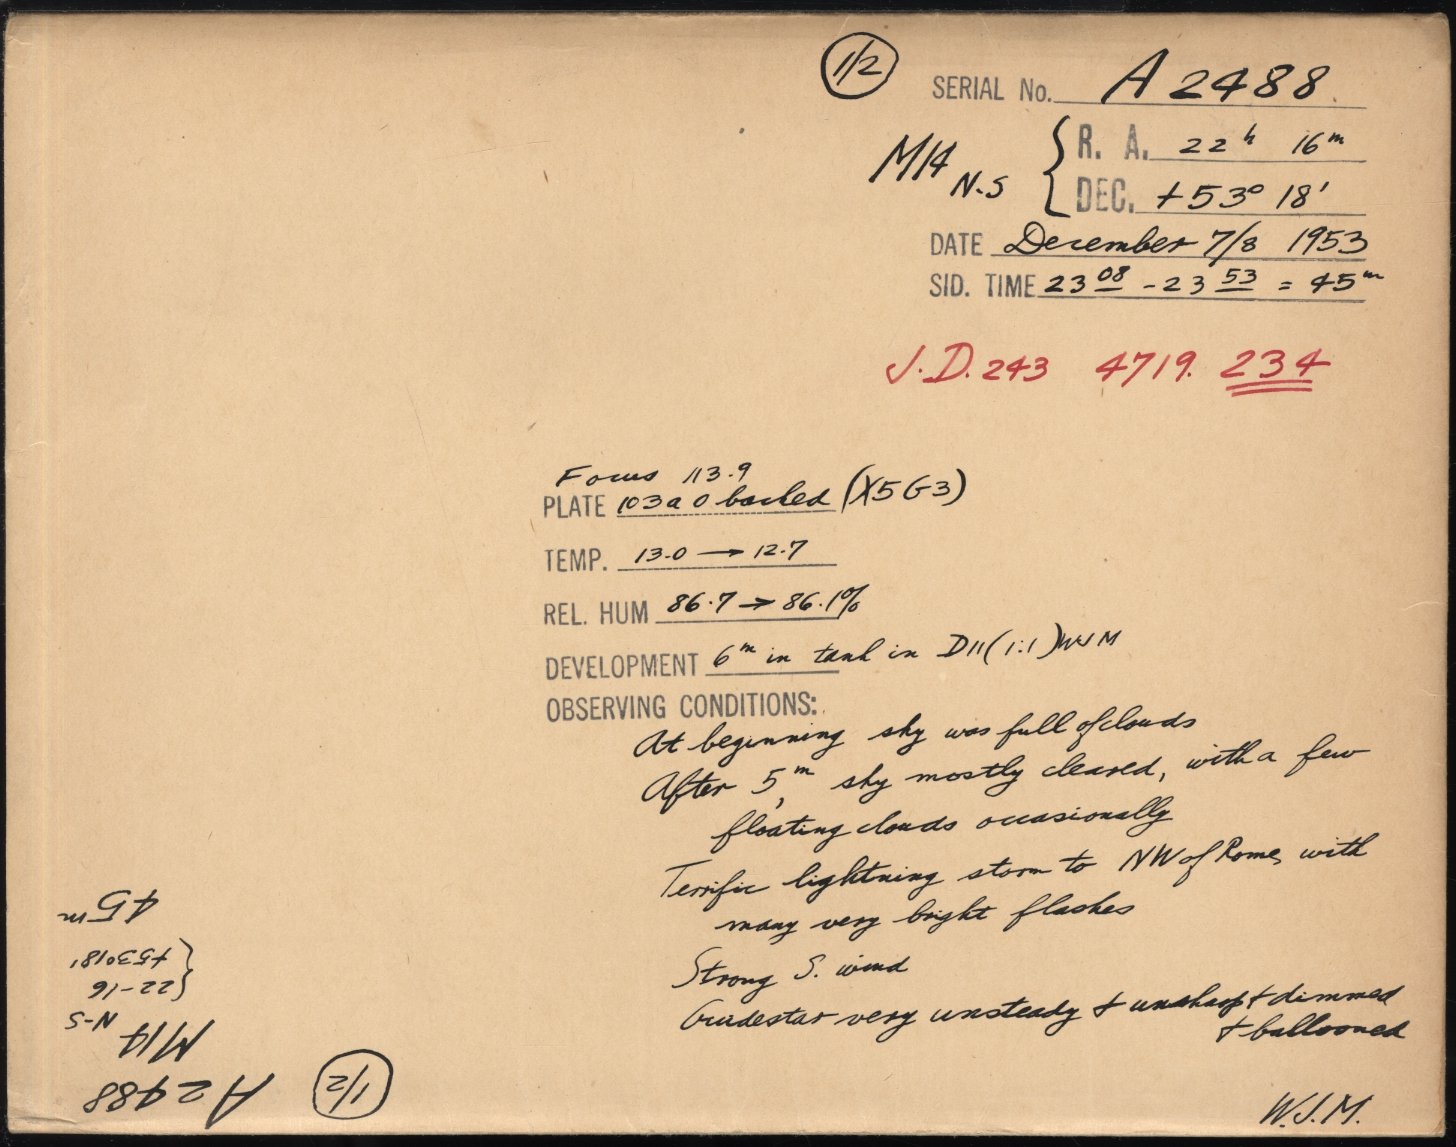 1/2
SERIAL No. A 2488
M14 N-S { R. A. 22h 16m
DEC. +53° 18'
DATE December 7/8 1953
SID. TIME 23 08 - 23 53 = 45m
J.D. 243 4719. 234
Focus 113.9
PLATE 103a O backed (X5G3)
TEMP. 13.0 → 12.7
REL. HUM 86.7 → 86.1%
DEVELOPMENT 6m in tank in D11 (1:1) WJM
OBSERVING CONDITIONS:
At beginning sky was full of clouds
After 5m sky mostly cleared, with a few
floating clouds occasionally
Terrific lightning storm to NW of Rome, with
many very bright flashes
Strong S. wind
Guidestar very unsteady + unsharp + dimmed
+ ballooned
W.J.M.
1/2
A 2488
M14
N-S
{22-16
+53°18'
45m